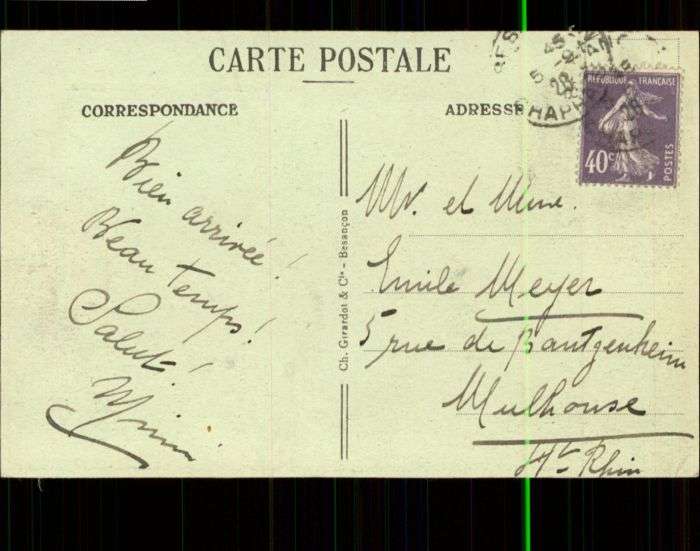 CARTE POSTALE
CORRESPONDANCE
ADRESSE
RÉPUBLIQUE FRANÇAISE
40c
POSTES
Bien arrivée!
Beau temps!
Salut!
Mimi
Ch. Girardot & Cie - Besançon
Mr. et Mme.
Emile Meyer
5 rue de Bantzenheim
Mulhouse
Ht Rhin